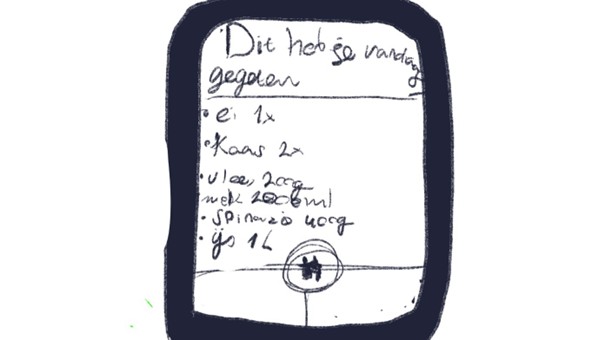 Dit heb je vandag
gegeten
• ei 1x
• Kaas 2x
• vlees 200g
melk 2000ml
• spinazie 400g
• ijs 1L